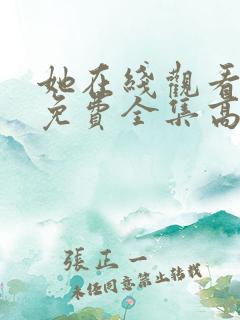 她在綫觀看
免費全集高
張正一
未經同意禁止轉載